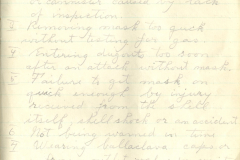 or canister caused by lack
of inspection.
3 Removing mask to quick
without testing for gas
4 Entering dugout too soon
after an attack without mask.
5 Failure to get mask on
quick enough by injury
received from the shell
itself, shell shock or an accident
6 Not being warned in time
7 Wearing ballaclava caps or